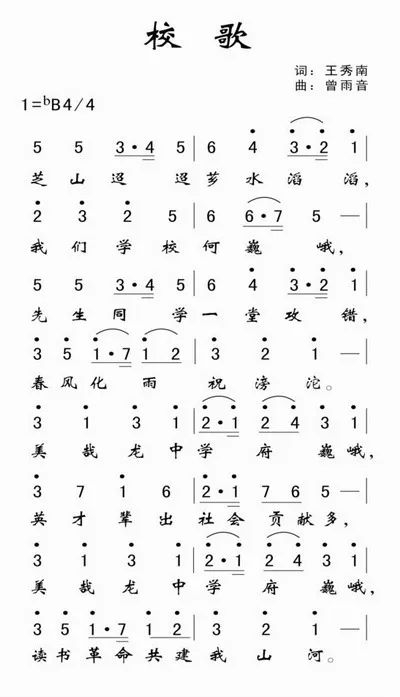 校 歌
词：王秀南
曲：曾雨音
1=ᵇB4/4
5 5 3·4 5 | 6 4 3·2 1 |
芝 山 迢 迢 芗 水 滔 滔，
2 3 2 5 | 6 6·7 5 — |
我 们 学 校 何 巍 峨，
5 5 3·4 5 | 6 4 3·2 1 |
先 生 同 学 一 堂 攻 错，
3 5 1·7 1 2 | 3 2 1 — |
春 风 化 雨 祝 滂 沱。
3 1 3 1 | 2·1 2 4 3 1 |
美 哉 龙 中 学 府 巍 峨，
3 7 1 6 | 2·1 7 6 5 — |
英 才 辈 出 社 会 贡 献 多，
3 1 3 1 | 2·1 2 4 3 1 |
美 哉 龙 中 学 府 巍 峨，
3 5 1·7 1 2 | 3 2 1 — |
读 书 革 命 共 建 我 山 河。